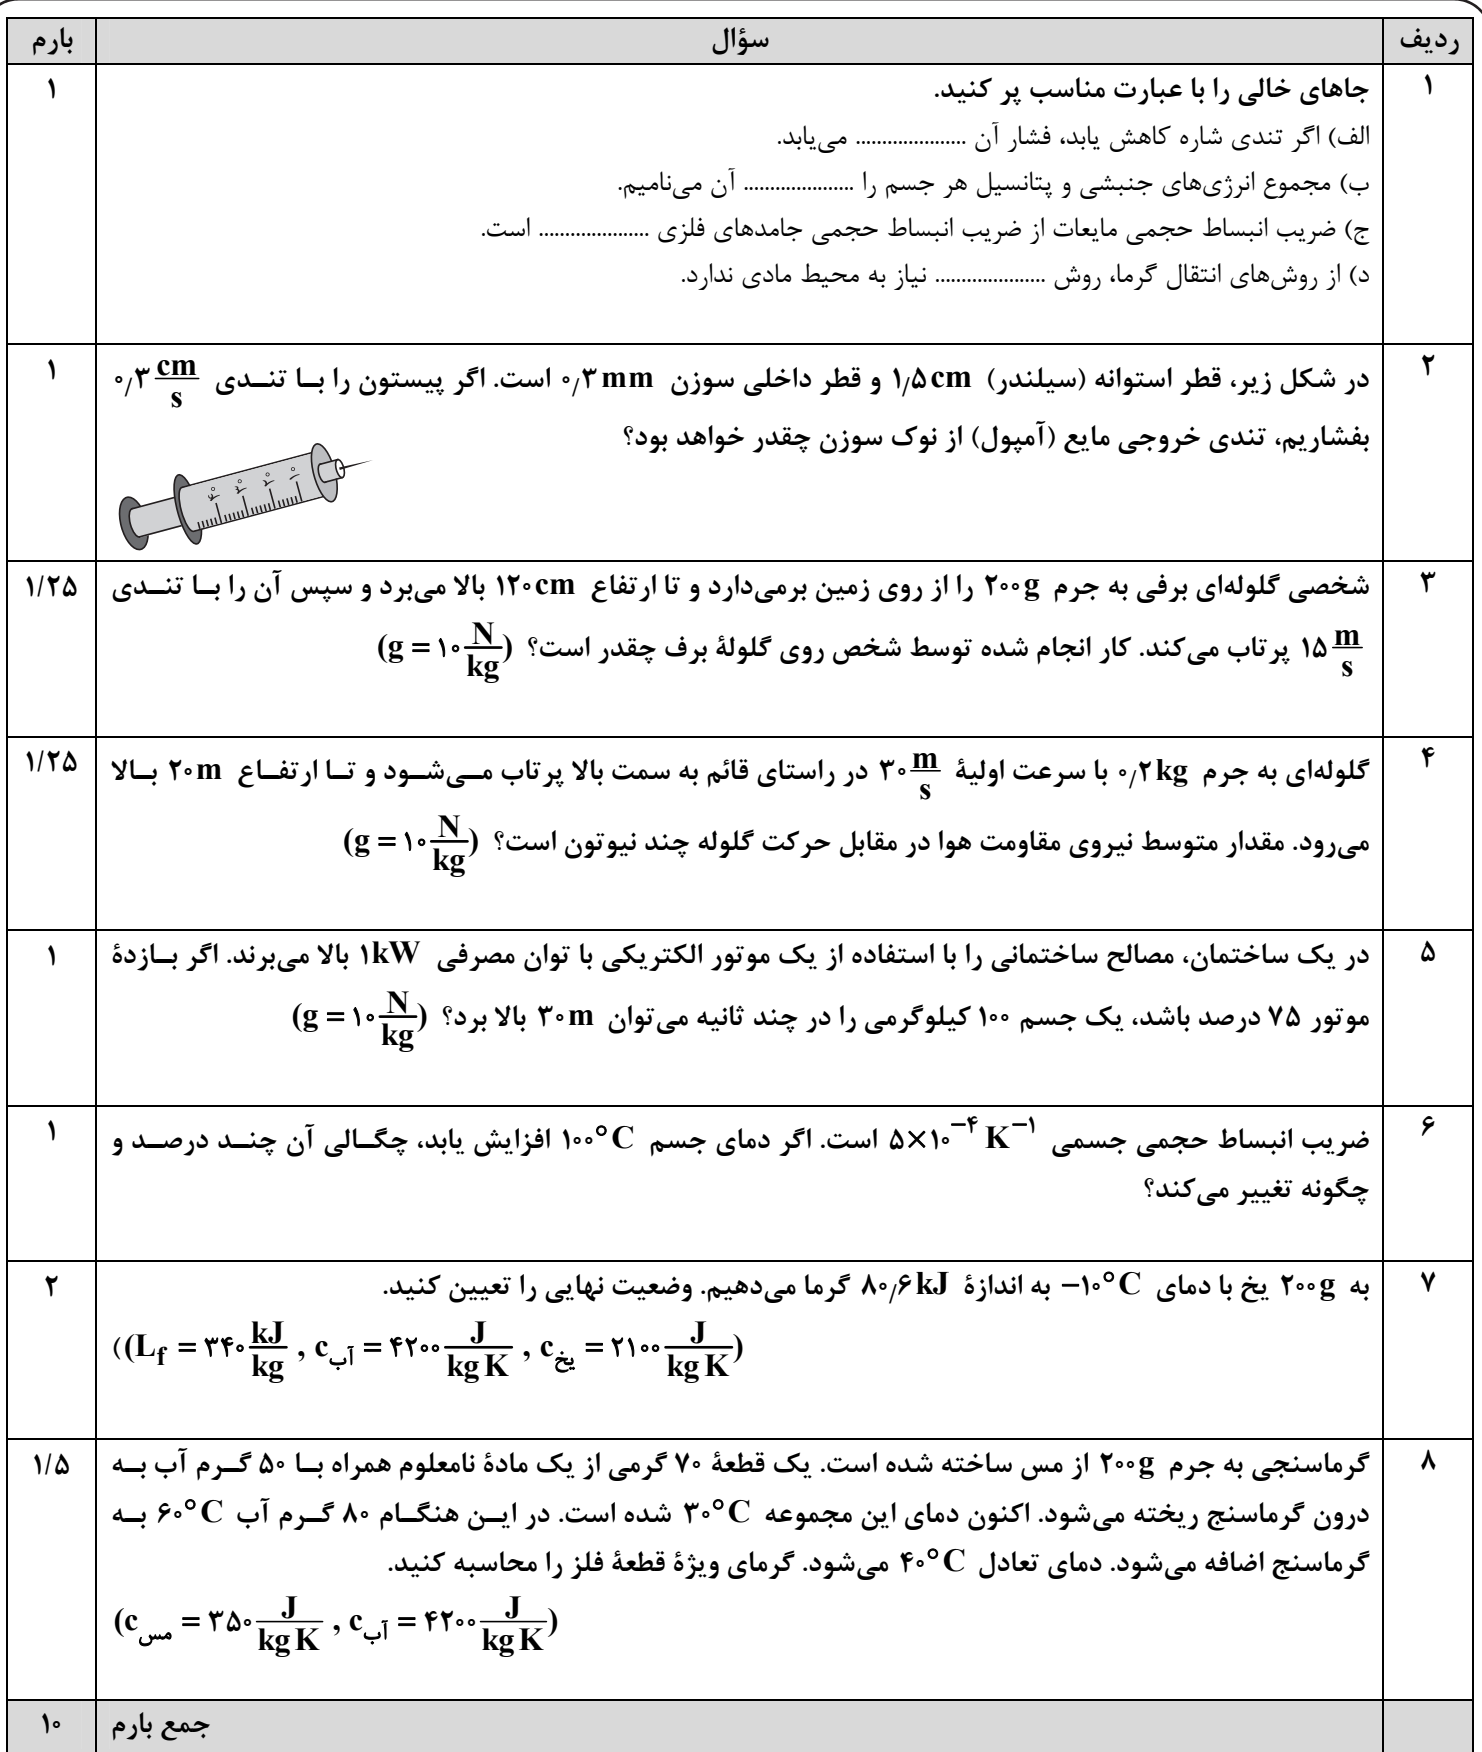 ردیف سؤال بارم
۱ جاهای خالی را با عبارت مناسب پر کنید. ۱
الف) اگر تندی شاره کاهش یابد، فشار آن ..................... می‌یابد.
ب) مجموع انرژی‌های جنبشی و پتانسیل هر جسم را ..................... آن می‌نامیم.
ج) ضریب انبساط حجمی مایعات از ضریب انبساط حجمی جامدهای فلزی ..................... است.
د) از روش‌های انتقال گرما، روش ..................... نیاز به محیط مادی ندارد.
۲ در شکل زیر، قطر استوانه (سیلندر) ۱٫۵ cm و قطر داخلی سوزن ۰٫۳ mm است. اگر پیستون را بـا تنـدی ۰٫۳ cm/s ۱
بفشاریم، تندی خروجی مایع (آمپول) از نوک سوزن چقدر خواهد بود؟
۴۰ ۳۰ ۲۰ ۱۰
۳ شخصی گلوله‌ای برفی به جرم ۲۰۰ g را از روی زمین برمی‌دارد و تا ارتفاع ۱۲۰ cm بالا می‌برد و سپس آن را بـا تنـدی ۱/۲۵
۱۵ m/s پرتاب می‌کند. کار انجام شده توسط شخص روی گلولهٔ برف چقدر است؟ (g = ۱۰ N/kg)
۴ گلوله‌ای به جرم ۰٫۲ kg با سرعت اولیهٔ ۳۰ m/s در راستای قائم به سمت بالا پرتاب مـی‌شـود و تـا ارتفـاع ۲۰ m بـالا ۱/۲۵
می‌رود. مقدار متوسط نیروی مقاومت هوا در مقابل حرکت گلوله چند نیوتون است؟ (g = ۱۰ N/kg)
۵ در یک ساختمان، مصالح ساختمانی را با استفاده از یک موتور الکتریکی با توان مصرفی ۱ kW بالا می‌برند. اگر بـازدهٔ ۱
موتور ۷۵ درصد باشد، یک جسم ۱۰۰ کیلوگرمی را در چند ثانیه می‌توان ۳۰ m بالا برد؟ (g = ۱۰ N/kg)
۶ ضریب انبساط حجمی جسمی ۵×۱۰⁻⁴ K⁻¹ است. اگر دمای جسم ۱۰۰°C افزایش یابد، چگـالی آن چنـد درصـد و ۱
چگونه تغییر می‌کند؟
۷ به ۲۰۰ g یخ با دمای −۱۰°C به اندازهٔ ۸۰٫۶ kJ گرما می‌دهیم. وضعیت نهایی را تعیین کنید. ۲
((L_f = ۳۴۰ kJ/kg , c_آب = ۴۲۰۰ J/kg K , c_یخ = ۲۱۰۰ J/kg K)
۸ گرماسنجی به جرم ۲۰۰ g از مس ساخته شده است. یک قطعهٔ ۷۰ گرمی از یک مادهٔ نامعلوم همراه بـا ۵۰ گـرم آب بـه ۱/۵
درون گرماسنج ریخته می‌شود. اکنون دمای این مجموعه ۳۰°C شده است. در ایـن هنگـام ۸۰ گـرم آب ۶۰°C بـه
گرماسنج اضافه می‌شود. دمای تعادل ۴۰°C می‌شود. گرمای ویژهٔ قطعهٔ فلز را محاسبه کنید.
(c_مس = ۳۵۰ J/kg K , c_آب = ۴۲۰۰ J/kg K)
جمع بارم ۱۰